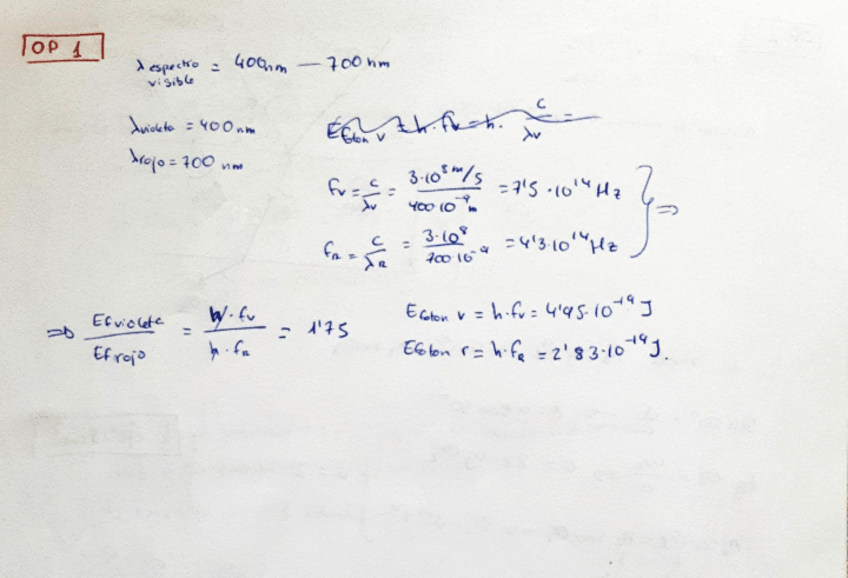 OP 1
λ espectro visible = 400nm — 700nm
λvioleta = 400nm
λrojo = 700 nm
Efoton v = h·fv = h· c/λv =
fv = c/λv = 3·10⁸ m/s / 400·10⁻⁹ m = 7'5·10¹⁴ Hz
fR = c/λR = 3·10⁸ / 700·10⁻⁹ = 4'3·10¹⁴ Hz } ⇒
⇒ Efvioleta / Efrojo = h·fv / h·fR = 1'75
Efoton v = h·fv = 4'95·10⁻¹⁹ J
Efoton r = h·fR = 2'83·10⁻¹⁹ J.